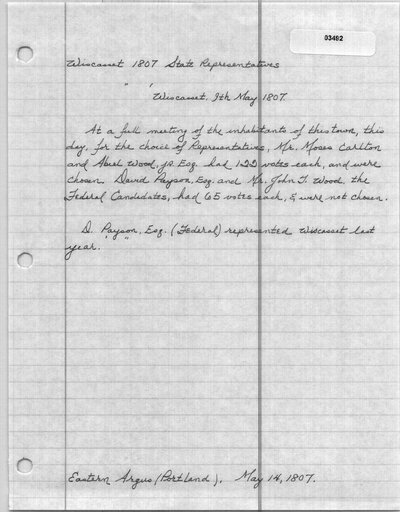 03402
Wiscasset 1807 State Representatives
" '
Wiscasset, 9th May 1807.
At a full meeting of the inhabitants of this town, this
day, for the choice of Representatives, Mr. Moses Carlton
and Abiel Wood, jr. Esq. had 122 votes each, and were
chosen. David Payson, Esq. and Mr. John T. Wood, the
Federal Candidates, had 65 votes each, & were not chosen.
D. Payson, Esq. (Federal) represented Wiscasset last
year. " "
Eastern Argus (Portland). May 14, 1807.